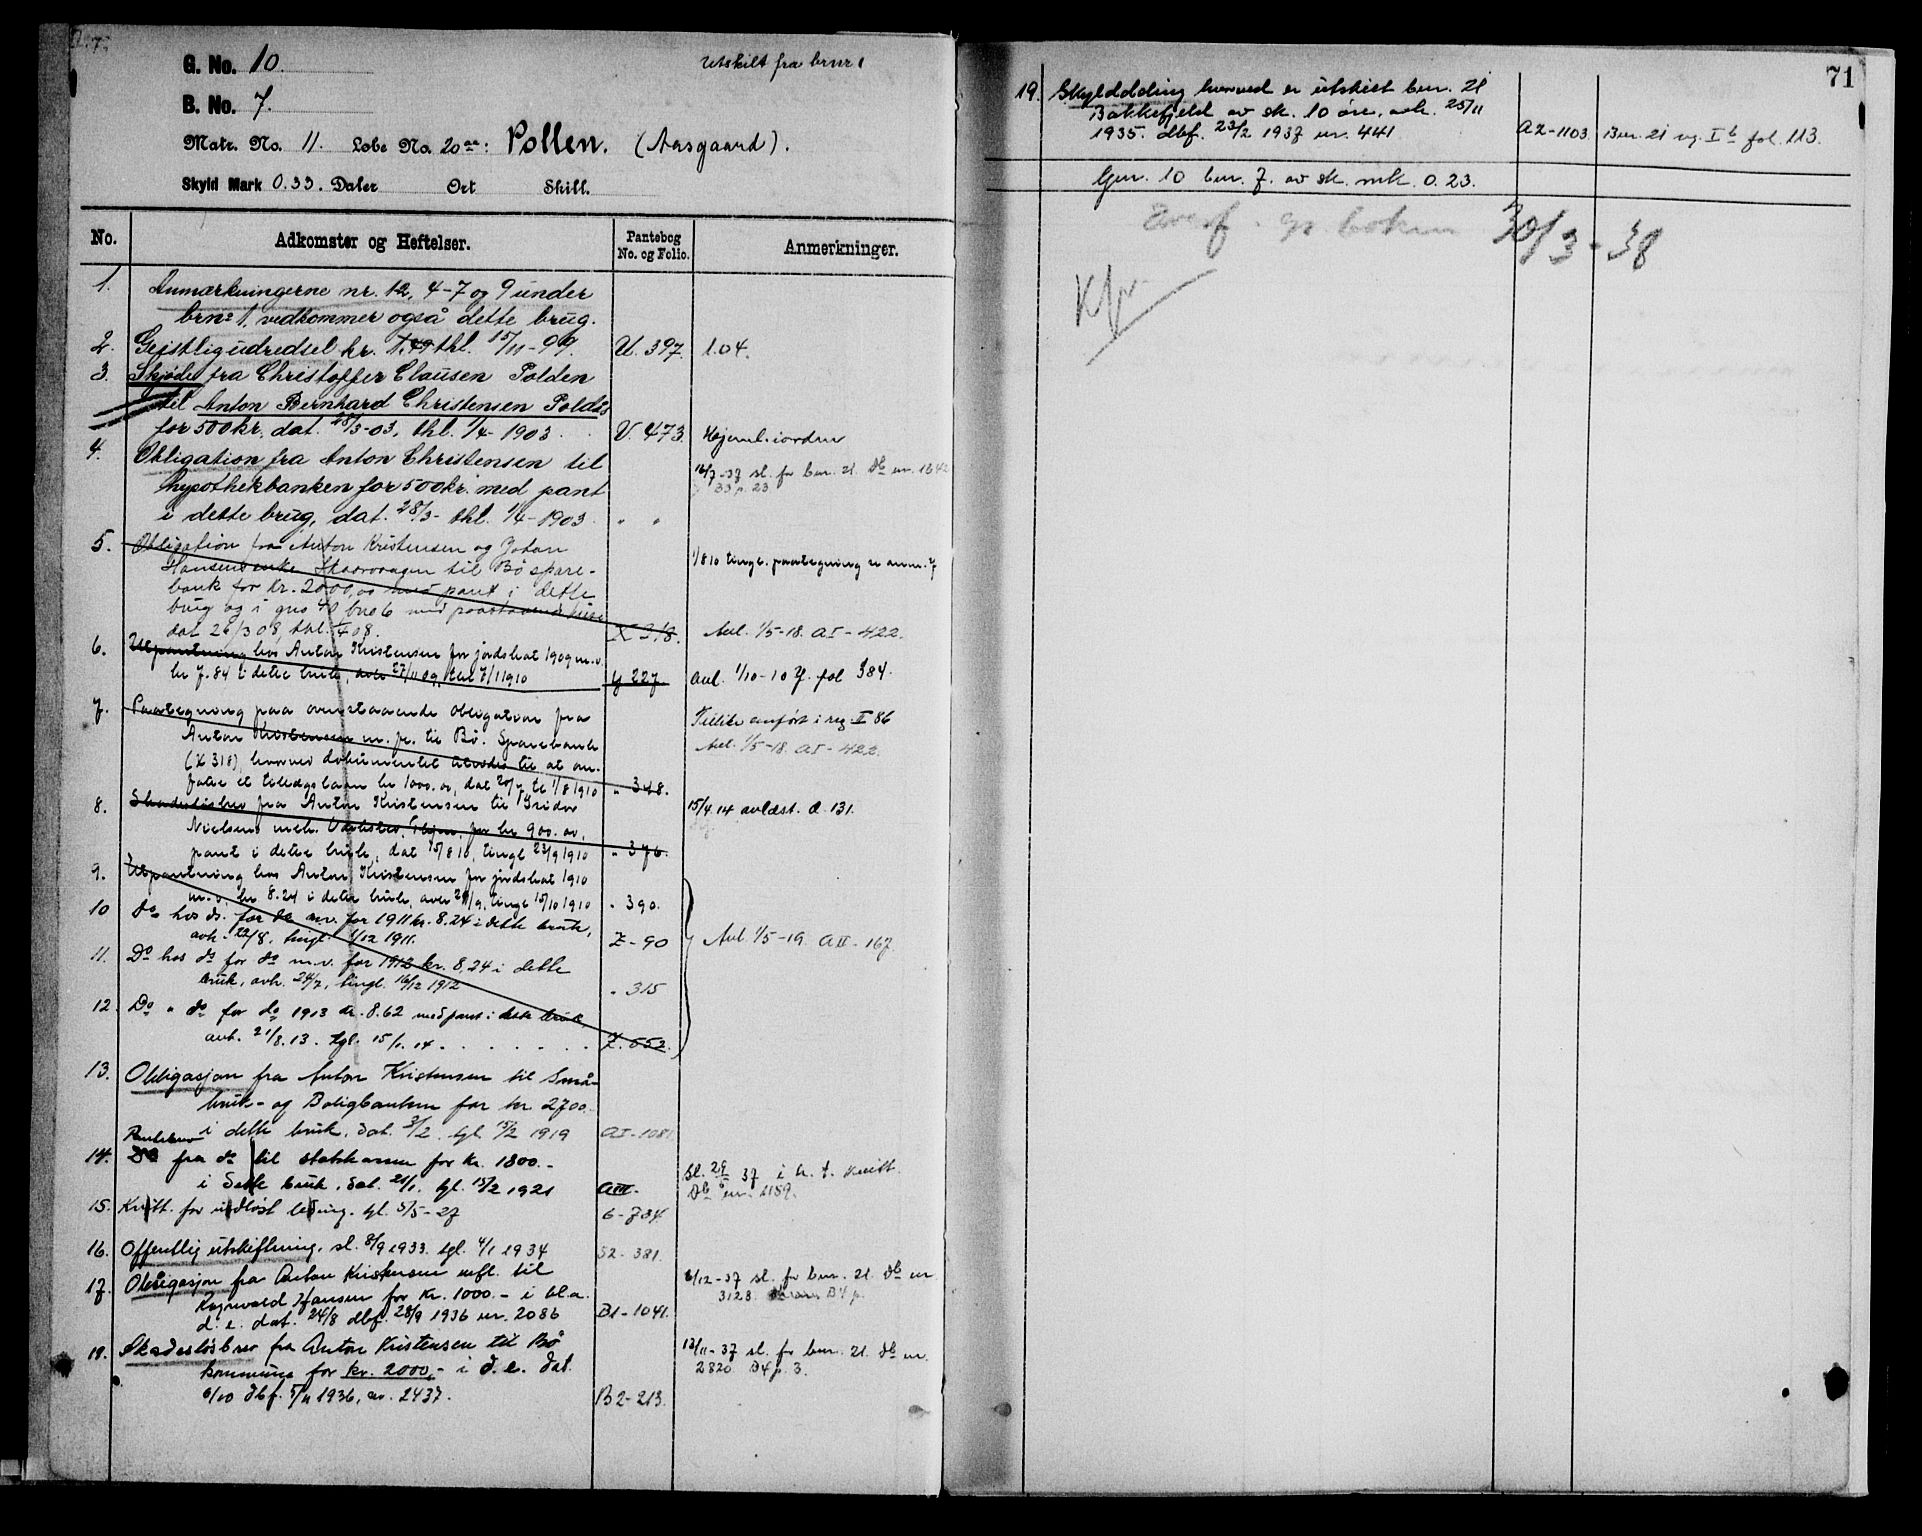 G. No. 10.
Utskilt fra brnr 1
B. No. 7.
Matr. No. 11. Løbe No. 20 : Pollen. (Aasgaard).
Skyld Mark 0.33. Daler Ort Skill.
No. Adkomster og Heftelser. Pantebog No. og Folio. Anmerkninger.
1. Anmærkningerne nr. 12, 4-7 og 9 under
brno 1, vedkommer også dette brug.
2. Geistlig udredsel kr. thl. 15/11-99. U. 397. 1.04.
3. Skjøde fra Christoffer Clausen Polden
til Anton Bernhard Christensen Polden
for 500 kr. dat. 28/3-03, thl. 1/4-1903. V. 473. Hjeml. iorden
4. Obligation fra Anton Christensen til
hypothekbanken for 500 kr. med pant 16/7-37 sl. for bnr. 21. Db nr. 1642
33 p. 23
i dette brug, dat. 28/3- thl. 1/4-1903. " "
5. Obligation fra Anton Kristensen og Johan
Hansens enke Skorovagen til Bø spare- 1/8 10 tingl. paategning se anm. 7
bank for kr. 2000,00 med pant i dette
brug og i gno 40 bno 6 med paastaaende huse
dat 26/3 08, thl. 1/4 08. X 318. Avl. 1/5-18. AI-422.
6. Utpantning hos Anton Kristensen for jordskat 1909 m.v.
kr 7.84 i dette bruk, avh 27/11 09, thl 7/1 1910 Y 227. Avl. 1/10-10 Y. fol 384.
7. Paategning paa ovenstaaende obligation fra
Anton Kristensen m. fl. til Bø Sparebank
(X 318) hvorved dokumentet utvides til at om-
fatte et tillægslaan kr 1000.00, dat 20/7 tl 1/8 1910 " 348. Tillike anført i reg. II 86
Avl. 1/5-18. AI-422.
8. Skadesløsbrev fra Anton Kristensen til Gridor
Nielsens mek. Verksted, for kr 900.00,
pant i dette bruk, dat 15/8 10, tingl 23/9 1910 " 376. 15/4 14 avlæst. Æ. 131.
9. Utpantning hos Anton Kristensen for jordskat 1910
m.v. kr 8.24 i dette bruk, avh 21/9, tingl 15/10 1910 " 390.
10 do hos ds. for do mv. for 1911 kr. 8.24 i dette bruk,
avh. 22/8, tingl. 1/12 1911. Z-90 Avl. 1/5-19. AII-167.
11. Do hos ds for do m.v. for 1912 kr. 8,24 i dette
bruk, avh. 24/7, tingl. 16/12 1912 " 315
12. Do " ds for do 1913 kr. 8.62 med pant i dette bruk
avh. 21/8.13. tgl. 15/1.14 Z. 652.
13. Obligasjon fra Anton Kristensen til Små-
bruk- og Boligbanken for kr 2700.
i dette bruk, dat. 3/2. tgl. 15/2 1919 AI-1081
Pantebrev
14. Do fra ds til statskassen for kr. 1800.-
i dette bruk, dat. 21/1. tgl. 15/2 1921 AIII. Sl. 29/5 37 i h. t. kvitt.
Db nr. 1189.
15. Kvitt. for innløst løsning. tgl. 5/5-27 6-734
16. Offentlig utskiftning, sl. 8/9 1933. tgl. 4/1 1934 S2-381.
17. Obligasjon fra Anton Kristensen mfl. til
Ragnvald Hansen for kr. 1000.- i bl.a.
d. e. dat. 24/8 dbf. 28/9 1936 nr. 2086 B1-1041. 6/12-37 sl. for bnr. 21. Db nr.
3128.
18. Skadesløsbrev fra Anton Kristensen til Bø
kommune for kr. 2000,- i d. e. dat.
6/10 dbf. 5/11 1936, nr. 2437. B2-213. 13/11-37 sl. for bnr. 21. Db nr.
2820 B4 p. 3.
71
19. Skylddeling hvorved er utskilt bnr. 21
Bakkefjeld av sk. 10 øre, avh. 25/11
1935. dbf. 23/2 1937 nr. 441 A2-1103. Bnr. 21 reg. Ib fol. 113.
Gnr. 10 bnr. 7. av sk. mrk. 0.23.
Overf. gr. boken 30/3-38